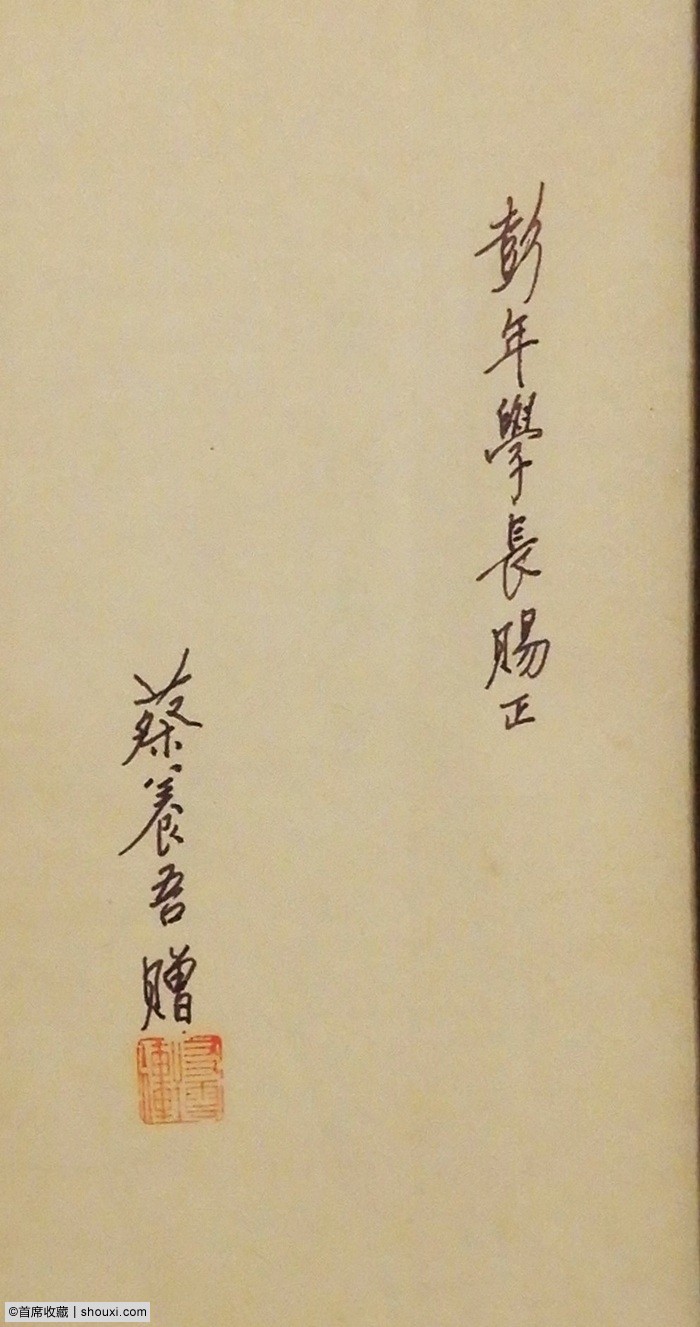 彭年學長賜正
蔡養吾 贈
©首席收藏 | shouxi.com